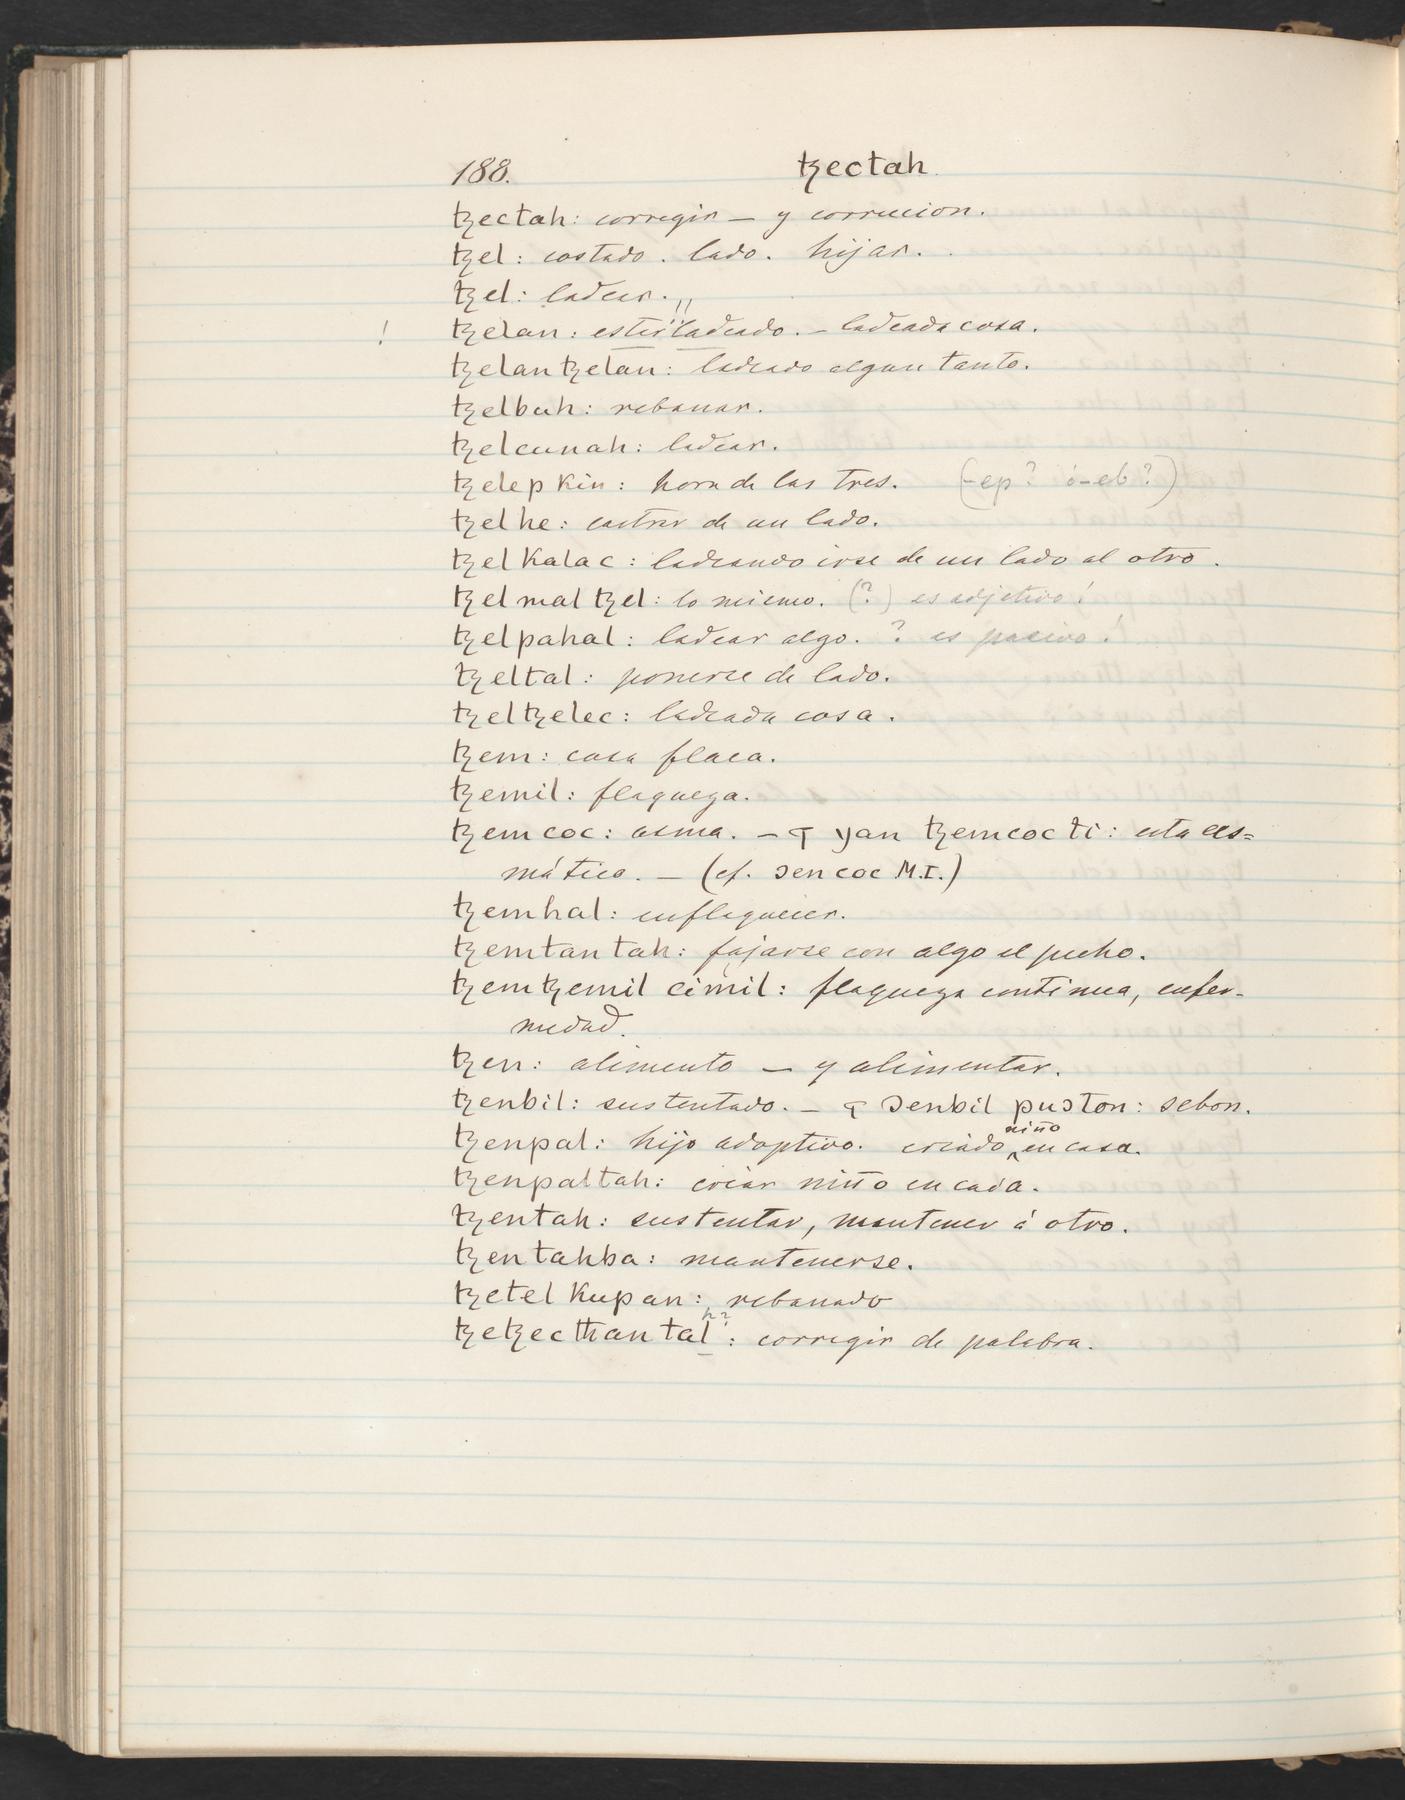 188. tzectah
tzectah: corregir — y correccion.
tzel: costado. lado. hijar.
tzel: ladear. "
! tzelan: estar ladeado. — ladeada cosa.
tzelan tzelan: ladeado algun tanto.
tzelbuh: rebanar.
tzelcunah: ladear.
tzelep kin: hora de las tres. (-ep? ó -eb?)
tzelhe: castrar de un lado.
tzel kalac: ladeando irse de un lado al otro.
tzel mal tzel: lo mismo. (?) es adjetivo!
tzelpahal: ladear algo. ? es pasivo!
tzeltal: ponerse de lado.
tzeltzelec: ladeada cosa.
tzem: cosa flaca.
tzemil: flaqueza.
tzem coc: asma. — ꟼ yan tzemcoc ti: esta as=
mático. — (cf. ɔen coc M.I.)
tzemhal: enflaquecer.
tzemtantah: fajarse con algo el pecho.
tzemtzemil cimil: flaqueza continua, enfer-
medad.
tzen: alimento — y alimentar.
tzenbil: sustentado. — ꟼ ɔenbil puɔton: sebon.
tzenpal: hijo adoptivo. criado niño en casa.
tzenpaltah: criar niño en casa.
tzentah: sustentar, mantener á otro.
tzentahba: mantenerse.
tzetel kupan: rebanado
tzetzecthantal h?: corregir de palabra.